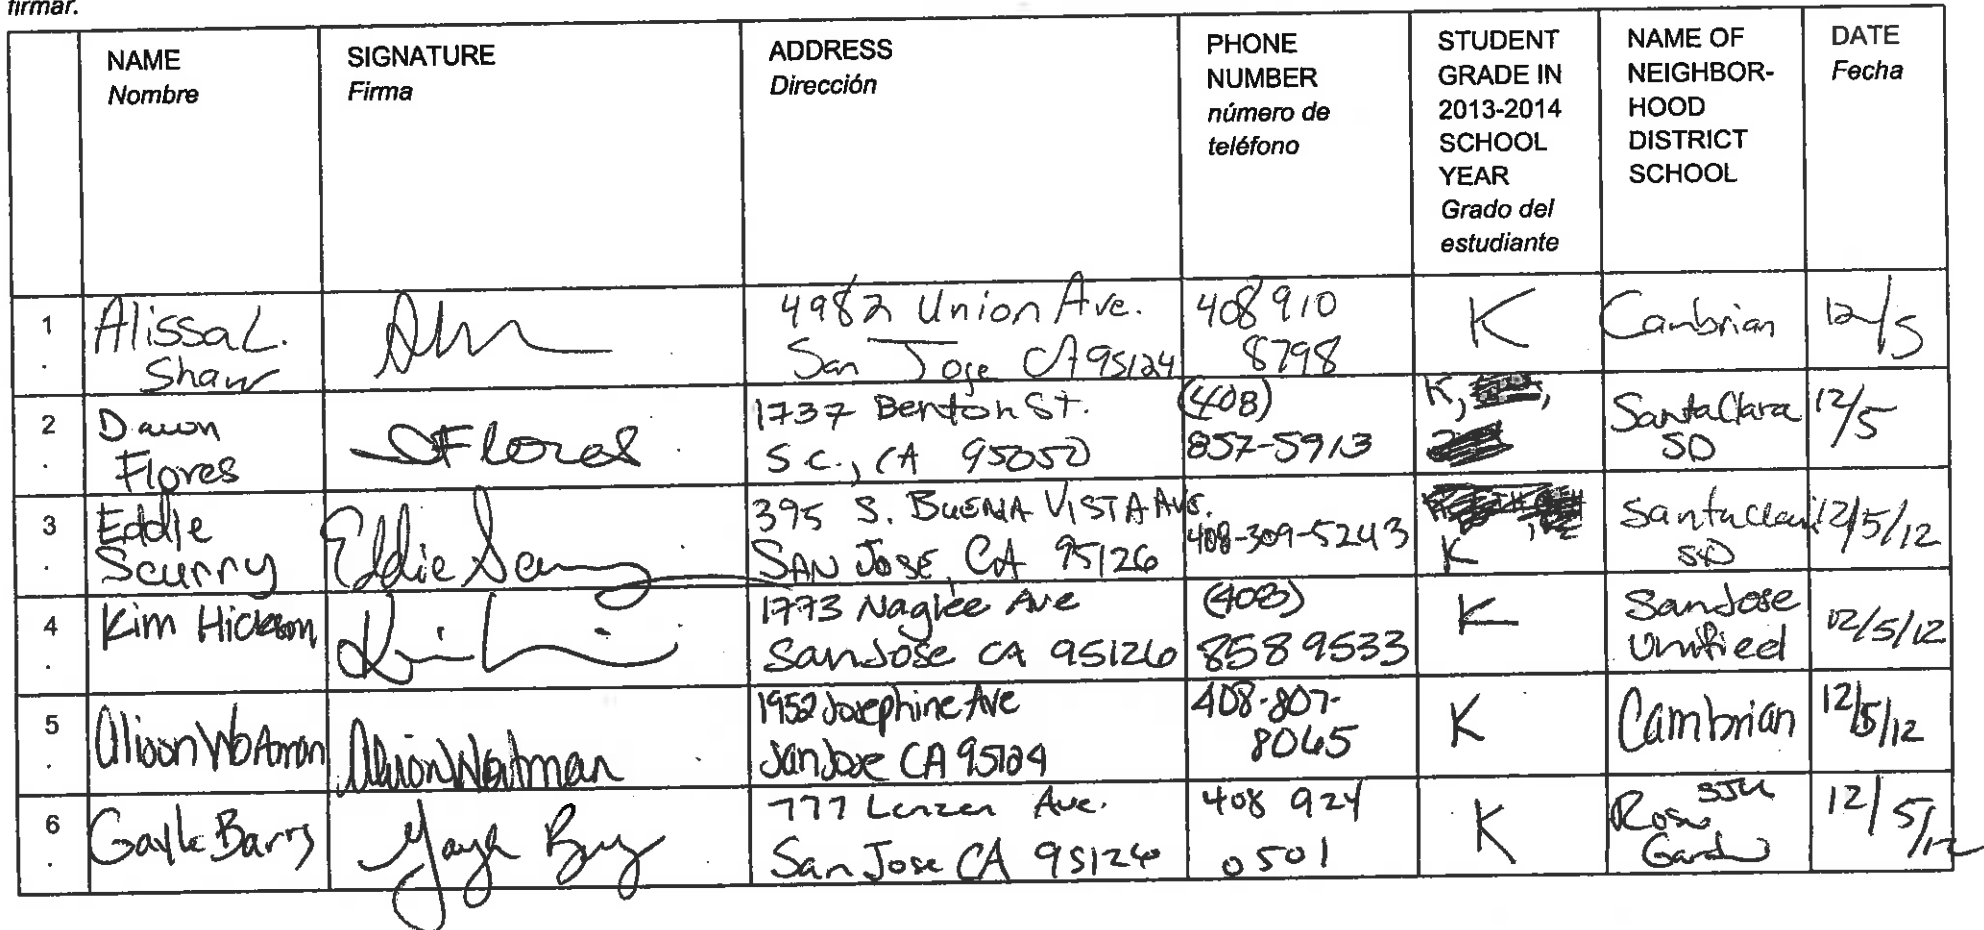 firmar.
NAME
Nombre
SIGNATURE
Firma
ADDRESS
Dirección
PHONE
NUMBER
número de
teléfono
STUDENT
GRADE IN
2013-2014
SCHOOL
YEAR
Grado del
estudiante
NAME OF
NEIGHBOR-
HOOD
DISTRICT
SCHOOL
DATE
Fecha
1
.
Alissa L.
Shaw
4982 Union Ave.
San Jose CA 95124
408 910
8798
K
Cambrian
12/5
2
.
Dawn
Flores
Flores
1737 Benton St.
S.C., CA 95050
(408)
857-5913
K,
Santa Clara
SD
12/5
3
.
Eddie
Scurry
Eddie
395 S. BUENA VISTA AVE.
SAN JOSE, CA 95126
408-309-5243
K
Santa Clara
SD
12/5/12
4
.
Kim Hickson
1773 Naglee Ave
San Jose CA 95126
(408)
858 9533
K
San Jose
Unified
12/5/12
5
.
Alison
Alison
1952 Josephine Ave
San Jose CA 95124
408-807-
8065
K
Cambrian
12/5/12
6
.
Gayle Barry
777 Lenzen Ave.
San Jose CA 95126
408 924
0501
K
Rose
12/5/12